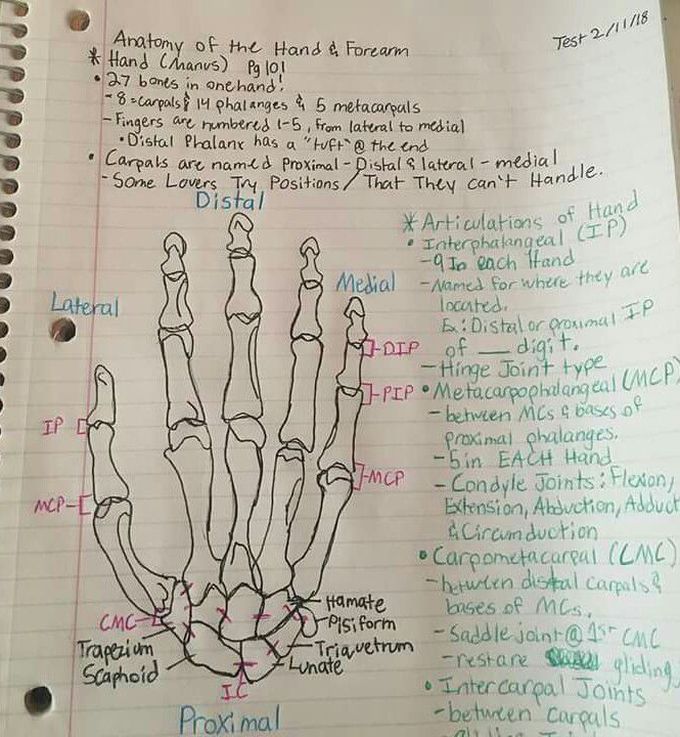 Test 2/11/18
Anatomy of the Hand & Forearm
* Hand (Manus) Pg 101
• 27 bones in one hand!
- 8 = carpals & 14 phalanges & 5 metacarpals
- Fingers are numbered 1-5, from lateral to medial
• Distal Phalanx has a "tuft" @ the end
• Carpals are named Proximal - Distal & lateral - medial
- Some Lovers Try Positions / That They can't Handle.
Distal
Lateral
Medial
DIP
PIP
IP
MCP
MCP
CMC
Trapezium
Scaphoid
IC
Hamate
Pisiform
Triquetrum
Lunate
Proximal
* Articulations of Hand
• Interphalangeal (IP)
- 9 In each Hand
- Named for where they are
located.
Ex: Distal or proximal IP
of __ digit.
- Hinge Joint type
• Metacarpophalangeal (MCP)
- between MCs & bases of
proximal phalanges.
- 5 in EACH Hand
- Condyle Joints: Flexion,
Extension, Abduction, Adduct
& Circumduction
• Carpometacarpal (CMC)
- between distal carpals &
bases of MCs.
- Saddle joint @ 1st CMC
- rest are gliding
• Intercarpal Joints
- between carpals